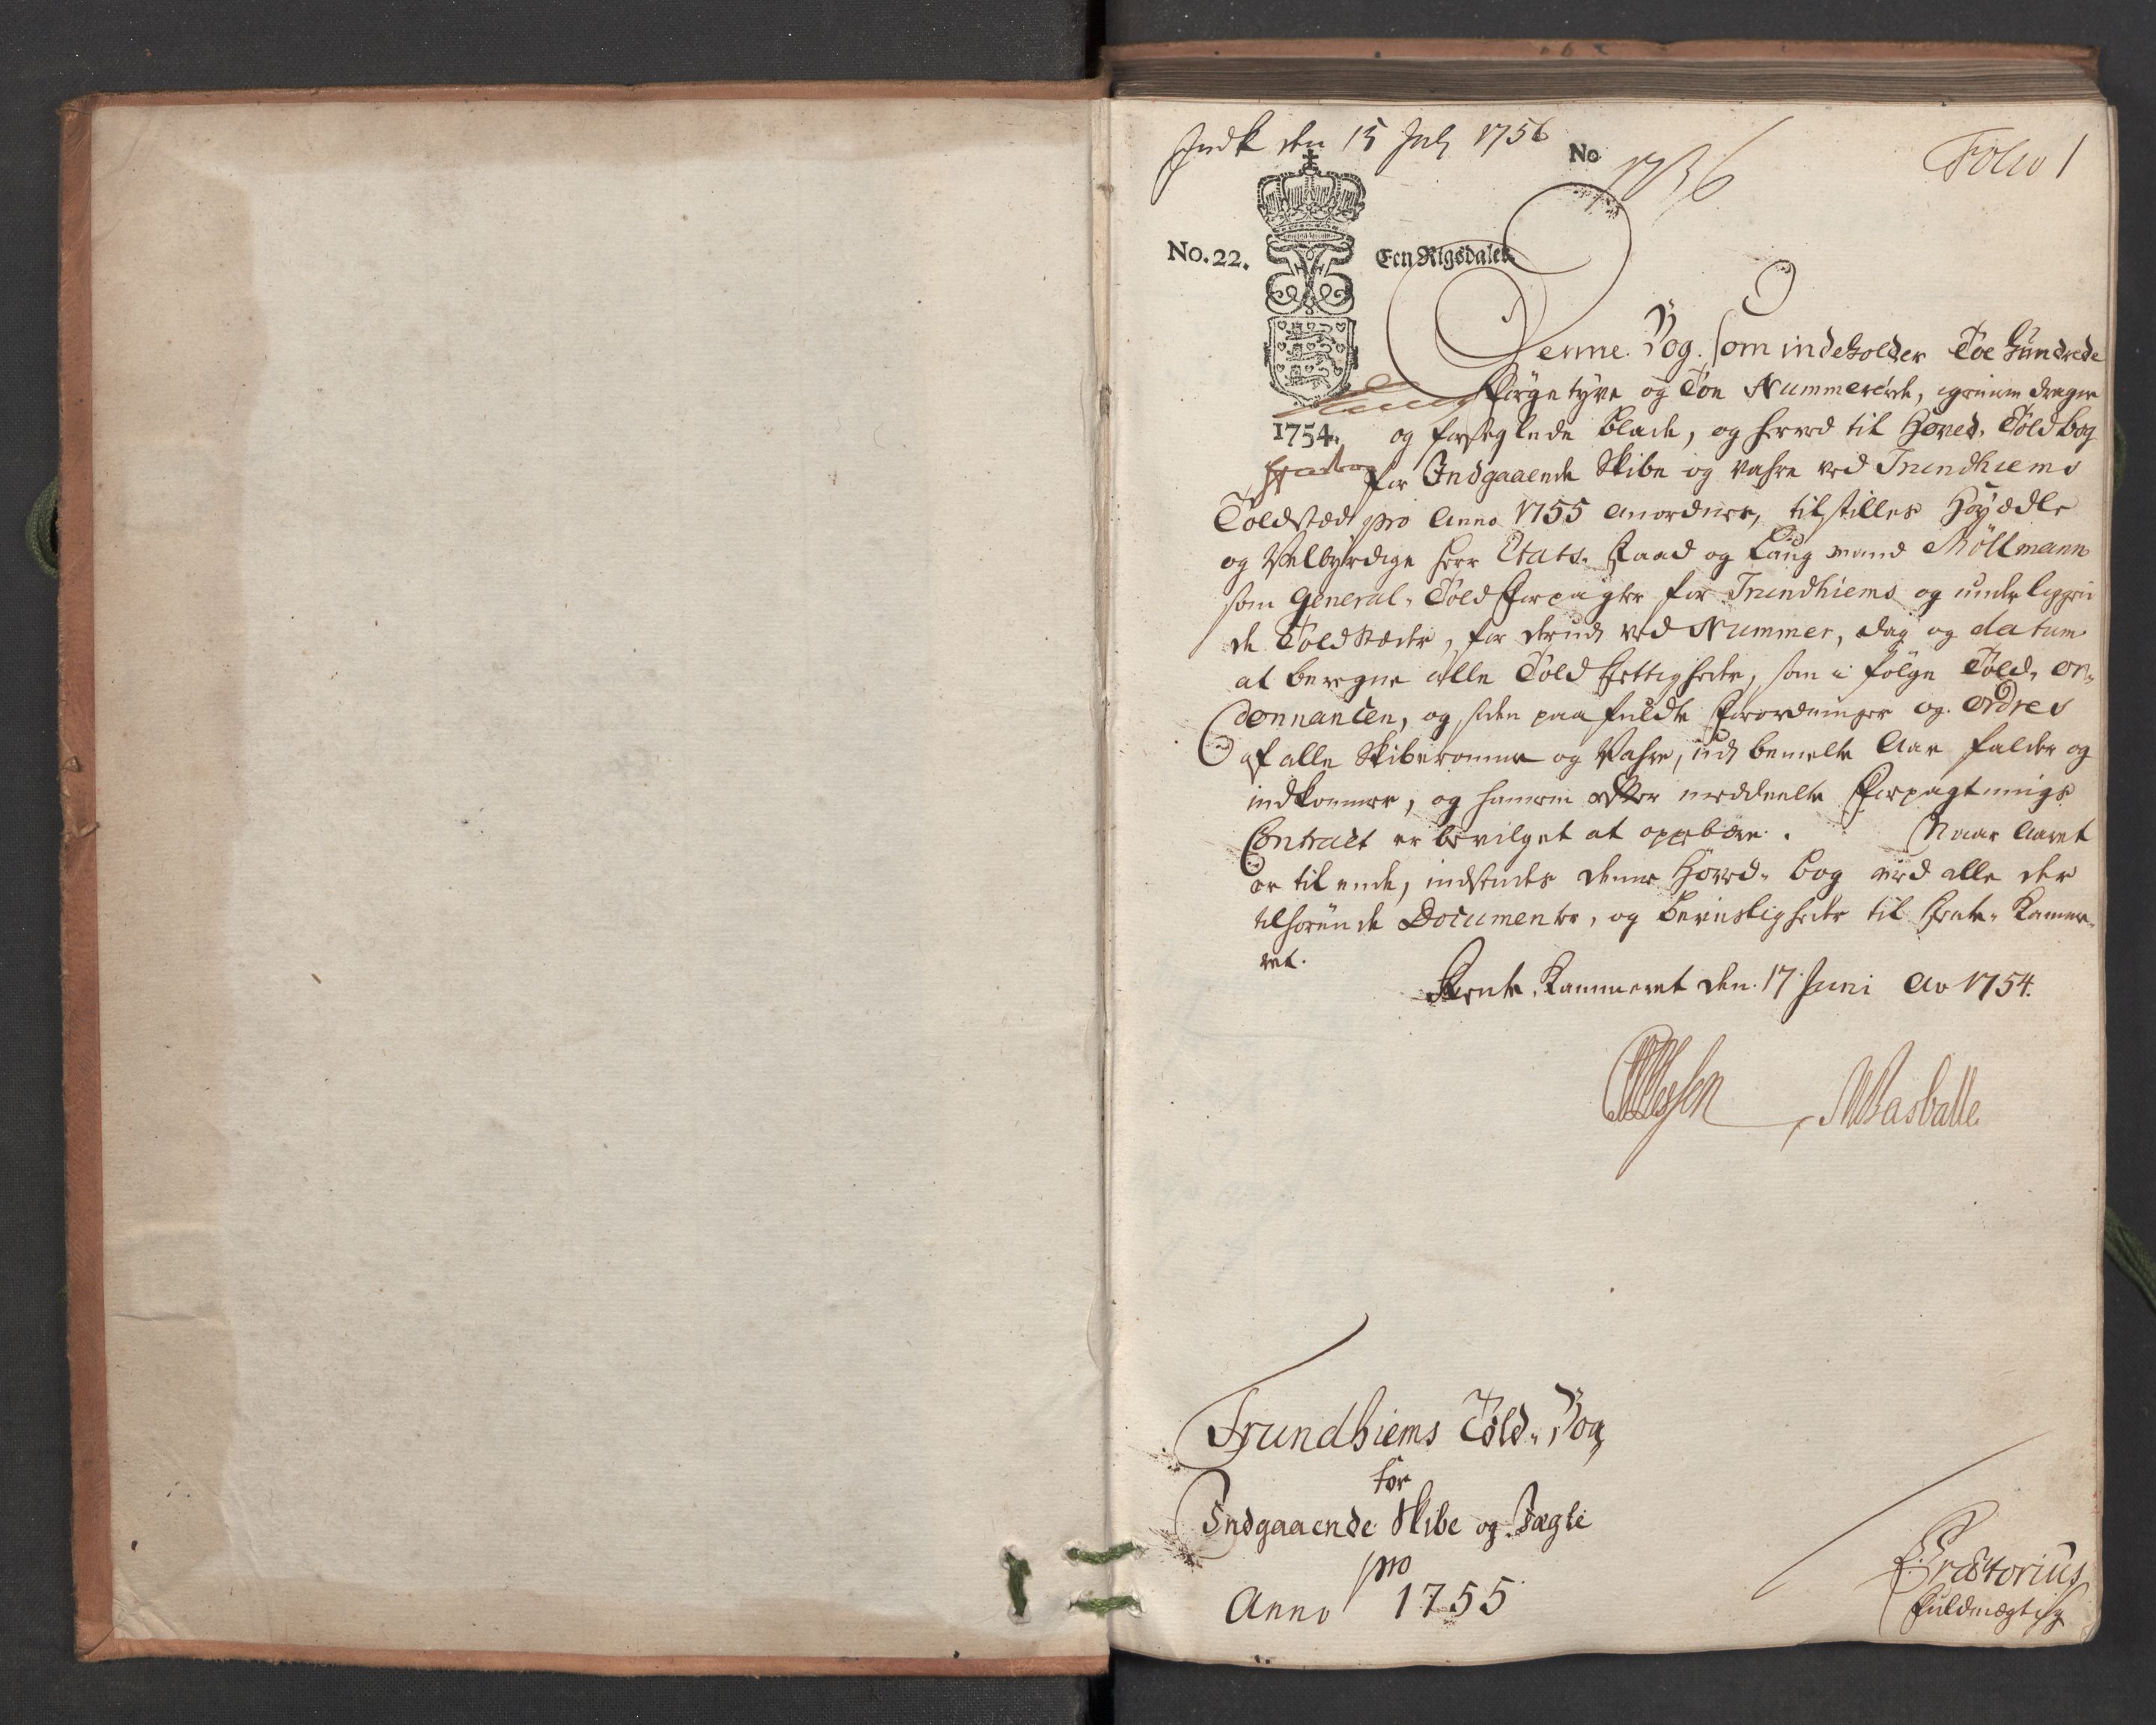 Indk den 15 July 1756
No 1736
Folio 1
No. 22.
Een Rigsdaler.
1754.
Denne Bog. som indeholder Toe Hundrede
Førgetyve og Toe Nummererte, igiennem dragne
og forseglede Blade, og herved til Hoved-Told bog
for Indgaaende Skibe og vahre ved Trundhiems
Toldsted pro Anno 1755 anordnes, tilstilles Høyædle
og Velbyrdige Herr Etats-Raad og Laug mand Möllmann
som General-Told Forpagter for Trundhiems og underliggen
de Toldstæder, for derudj ved Nummer, dag og datum
at beregne alle Told Rettigheder, som i følge Told-Or-
donnancen, og siden paafuldte Forordninger og Ordres
af alle Skiberomme og Vahre, udj bemelte Aar falder og
indkommer, og hannem efter meddeelte Forpagtnings
Contract er bevilget at oppebære. Naar Aaret
er til ende, indsendes denne Hoved-Bog med alle der
tilhørende Documenter, og Beviisligheder til Rente-Kamme-
ret.
Rente-Kammeret den 17 Juni Ao 1754.
Trundhiems Told-Bog
for
Indgaaende Skibe og Jægte
pro
Anno 1755
Prætorius
Fuldmægtig